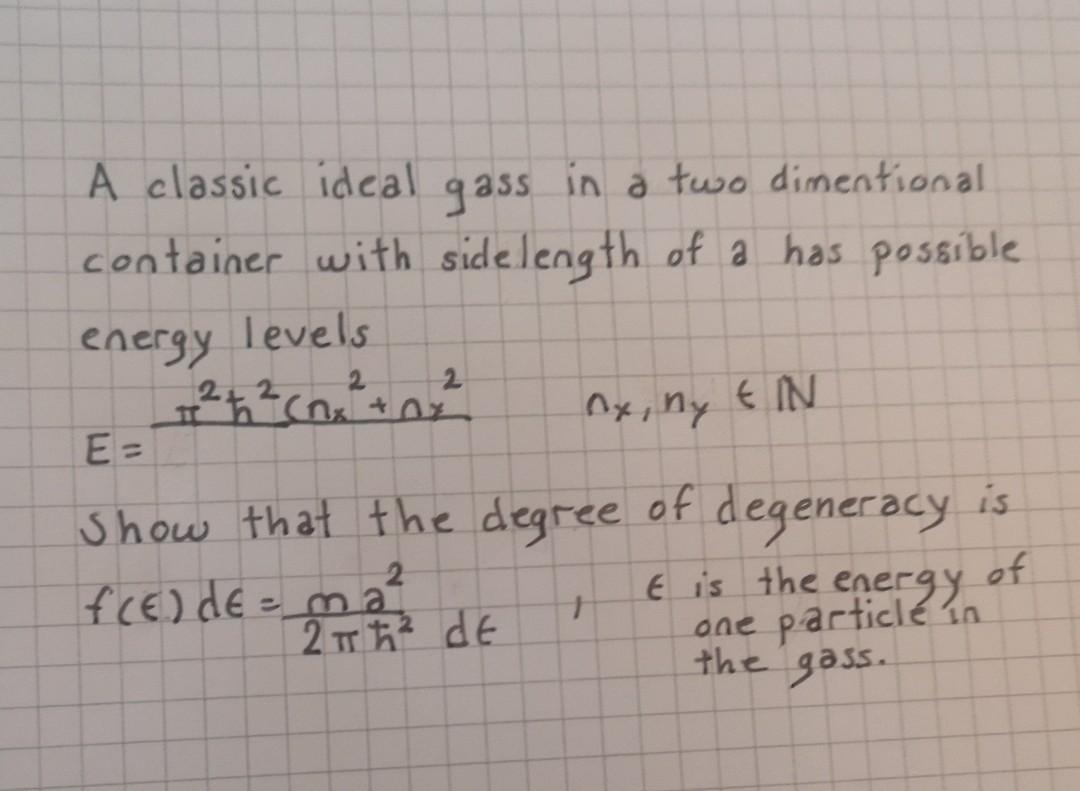 A classic ideal gass in a two dimentional
container with sidelength of a has possible
energy levels
E = π²ħ²(nx² + nx² nx, ny ∈ ℕ
Show that the degree of degeneracy is
f(ϵ) dϵ = ma²/2πħ² dϵ , ϵ is the energy of
one particle in
the gass.